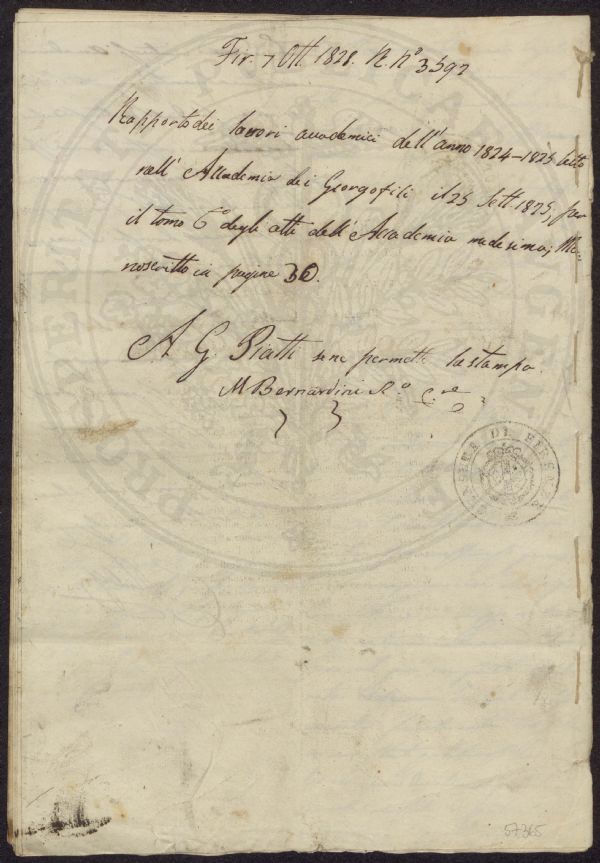 Fir. 7 Ott. 1828. N. N.º 3592
Rapporto dei lavori accademici dell'anno 1824-1825 letto
nell' Accademia dei Georgofili il 25 Sett. 1825, per
il tomo 6º degli atti dell'Accademia medesima; Ma=
noscritto in pagine 30.
A G. Piatti se ne permette la stampa.
M Bernardini R.º C.re
CENSURA DI FIRENZE
PROSPERITA
57365